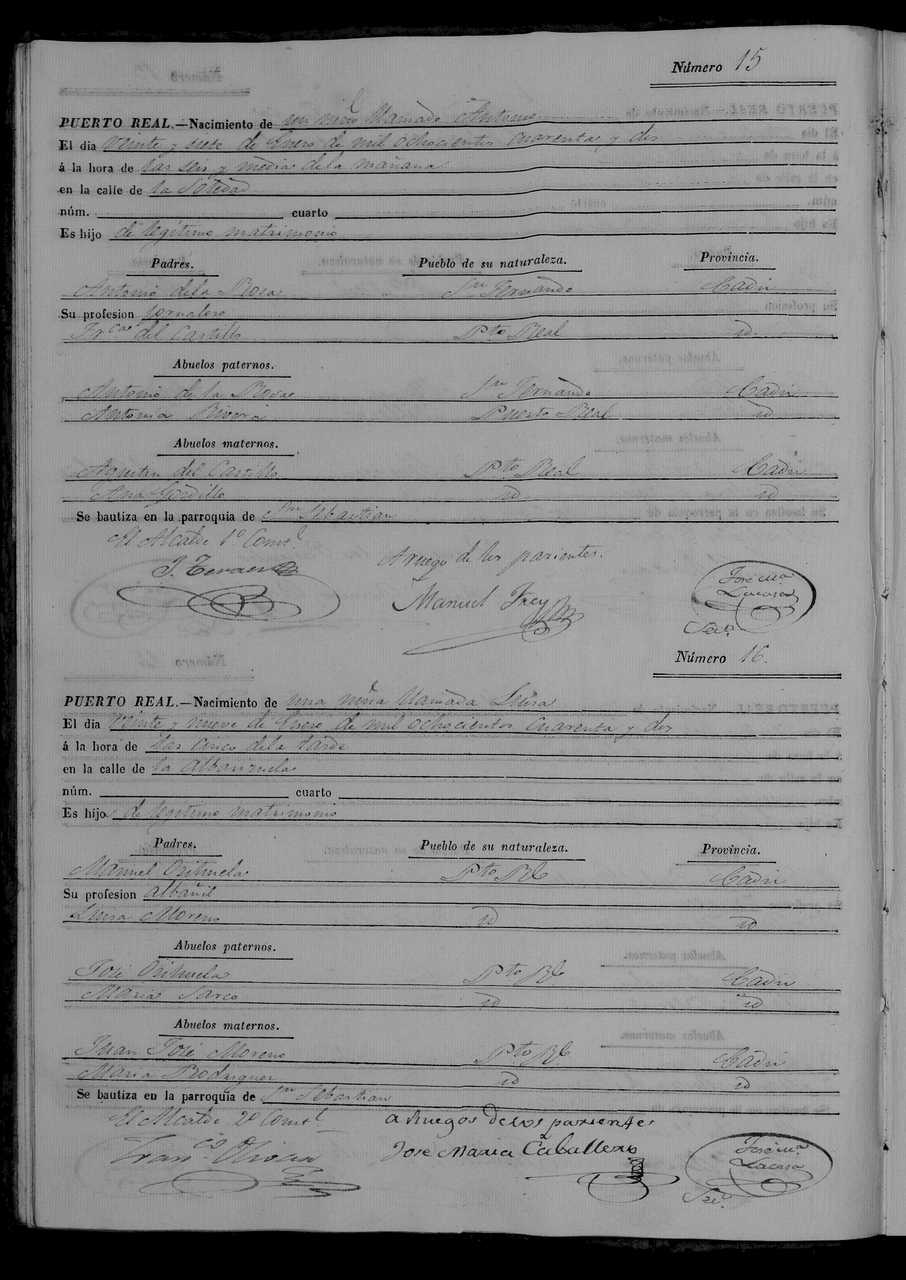 Número 15
PUERTO REAL.—Nacimiento de un niño llamado Antonio
El dia veinte y siete de Enero de mil ochocientos cuarenta y dos
á la hora de las seis y media de la mañana
en la calle de la Soledad
núm. cuarto
Es hijo de legitimo matrimonio
Padres. Pueblo de su naturaleza. Provincia.
Antonio de la Rosa Sn Fernando Cadiz
Su profesion jornalero
Frca del Castillo Pto Real id
Abuelos paternos.
Antonio de la Rosa Sn Fernando Cadiz
Antonia Rivera Puerto Real id
Abuelos maternos.
Agustin del Castillo Pto Real Cadiz
Ana Gordillo id id
Se bautiza en la parroquia de Sn Sebastian
El Alcalde 1º Const.l
A ruego de los parientes.
Manuel Frey
José Ma
Lacasa
Sec.º
Número 16.
PUERTO REAL.—Nacimiento de una niña llamada Luisa
El dia veinte y nueve de Enero de mil ochocientos cuarenta y dos
á la hora de las cinco de la tarde
en la calle de la
núm. cuarto
Es hijo de legitimo matrimonio
Padres. Pueblo de su naturaleza. Provincia.
Manuel Orihuela Pto Rl Cadiz
Su profesion Albañil
Luisa Moreno id id
Abuelos paternos.
José Orihuela Pto Rl Cadiz
Maria id id
Abuelos maternos.
Juan José Moreno Pto Rl Cadiz
Maria Rodriguez id id
Se bautiza en la parroquia de Sn Sebastian
El Alcalde 2º Const.l a Ruegos de los parientes
Franco Olivera José Maria Caballero José Ma
Lacasa
Sec.º